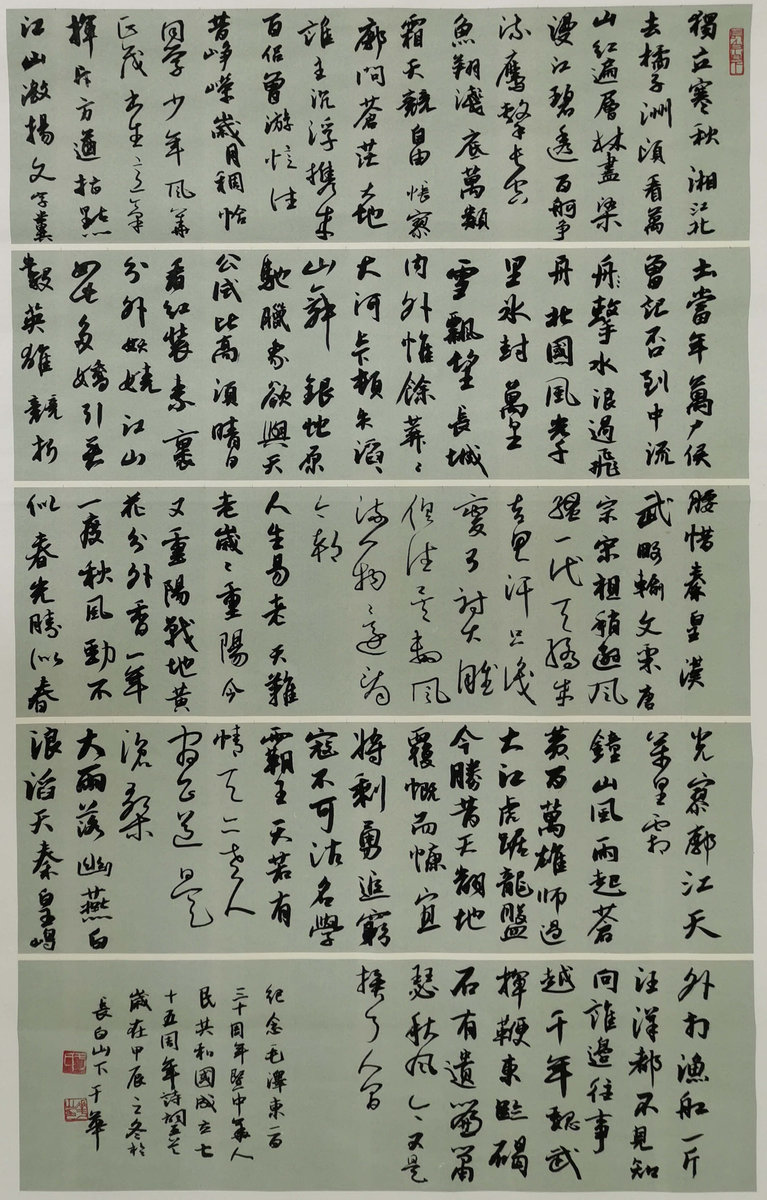 獨立寒秋湘江北
去橘子洲頭看萬
山紅遍層林盡染
漫江碧透百舸爭
流鷹擊長空
魚翔淺底萬類
霜天競自由悵寥
廓問蒼茫大地
誰主沉浮携來
百侣曾游憶往
昔崢嶸歲月稠恰
同學少年風華
正茂書生意氣
揮斥方遒指點
江山激揚文字糞
土當年萬户侯
曾記否到中流
擊水浪遏飛
舟北國風光千
里冰封萬里
雪飄望長城
内外惟餘莽〻
大河上下頓失滔〻
山舞銀蛇原
馳臘象欲與天
公試比高須晴日
看紅裝素裹
分外妖嬈江山
如此多嬌引無
數英雄競折
腰惜秦皇漢
武略輸文采唐
宗宋祖稍遜風
騷一代天驕成
吉思汗只識
彎弓射大雕
俱往矣數風
流人物還看
今朝
人生易老天難
老歲〻重陽今
又重陽戰地黄
花分外香一年
一度秋風勁不
似春光勝似春
光寥廓江天
萬里霜
鐘山風雨起蒼
黄百萬雄師過
大江虎踞龍盤
今勝昔天翻地
覆慨而慷宜
將剩勇追窮
寇不可沽名學
霸王天若有
情天亦老人
間正道是
滄桑
大雨落幽燕白
浪滔天秦皇島
外打漁船一片
汪洋都不見知
向誰邊往事
越千年魏武
揮鞭東臨碣
石有遺篇蕭
瑟秋風今又是
換了人間
紀念毛澤東一百
三十周年暨中華人
民共和國成立七
十五周年詩詞
歲在甲辰之冬於
長白山下于華